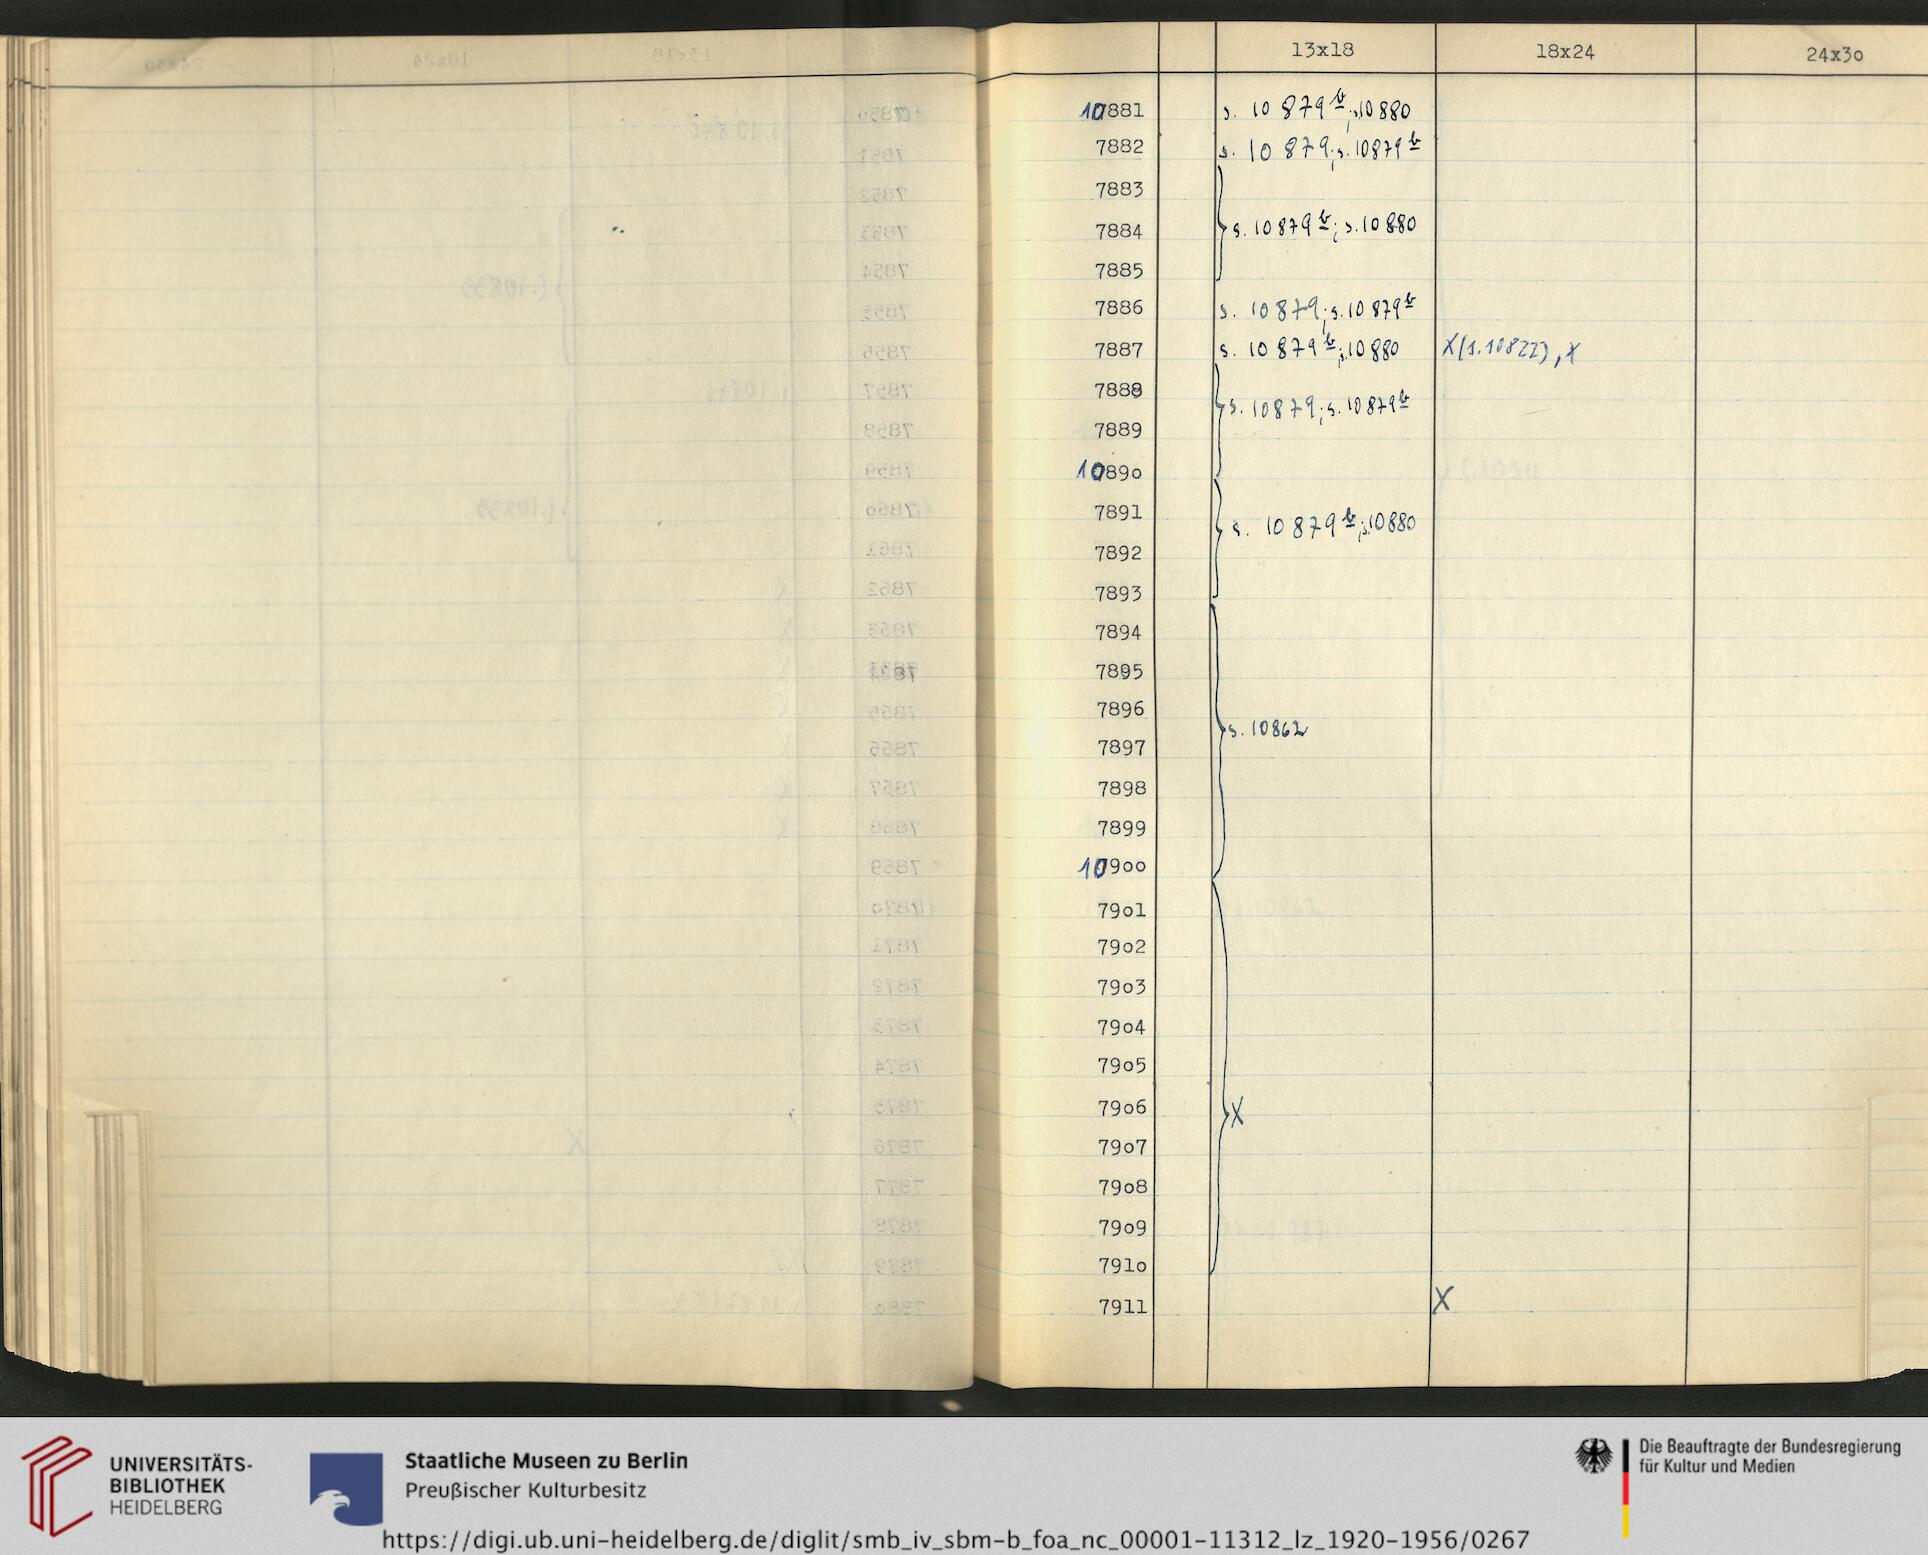 13x18 18x24 24x3o
10881 s. 10879b; s.10880
7882 s. 10879; s. 10879b
7883
7884 s. 10879b; s. 10880
7885
7886 s. 10879; s. 10879b
7887 s. 10879b; s.10880 X(s.10822), X
7888 s. 10879; s. 10879b
7889
10890
7891 s. 10879b; s.10880
7892
7893
7894
7895
7896
7897 s. 10862
7898
7899
109oo
79o1
79o2
79o3
79o4
79o5
79o6 X
79o7
79o8
79o9
791o
7911 X
UNIVERSITÄTS-
BIBLIOTHEK
HEIDELBERG
Staatliche Museen zu Berlin
Preußischer Kulturbesitz
Die Beauftragte der Bundesregierung
für Kultur und Medien
https://digi.ub.uni-heidelberg.de/diglit/smb_iv_sbm-b_foa_nc_00001-11312_lz_1920-1956/0267